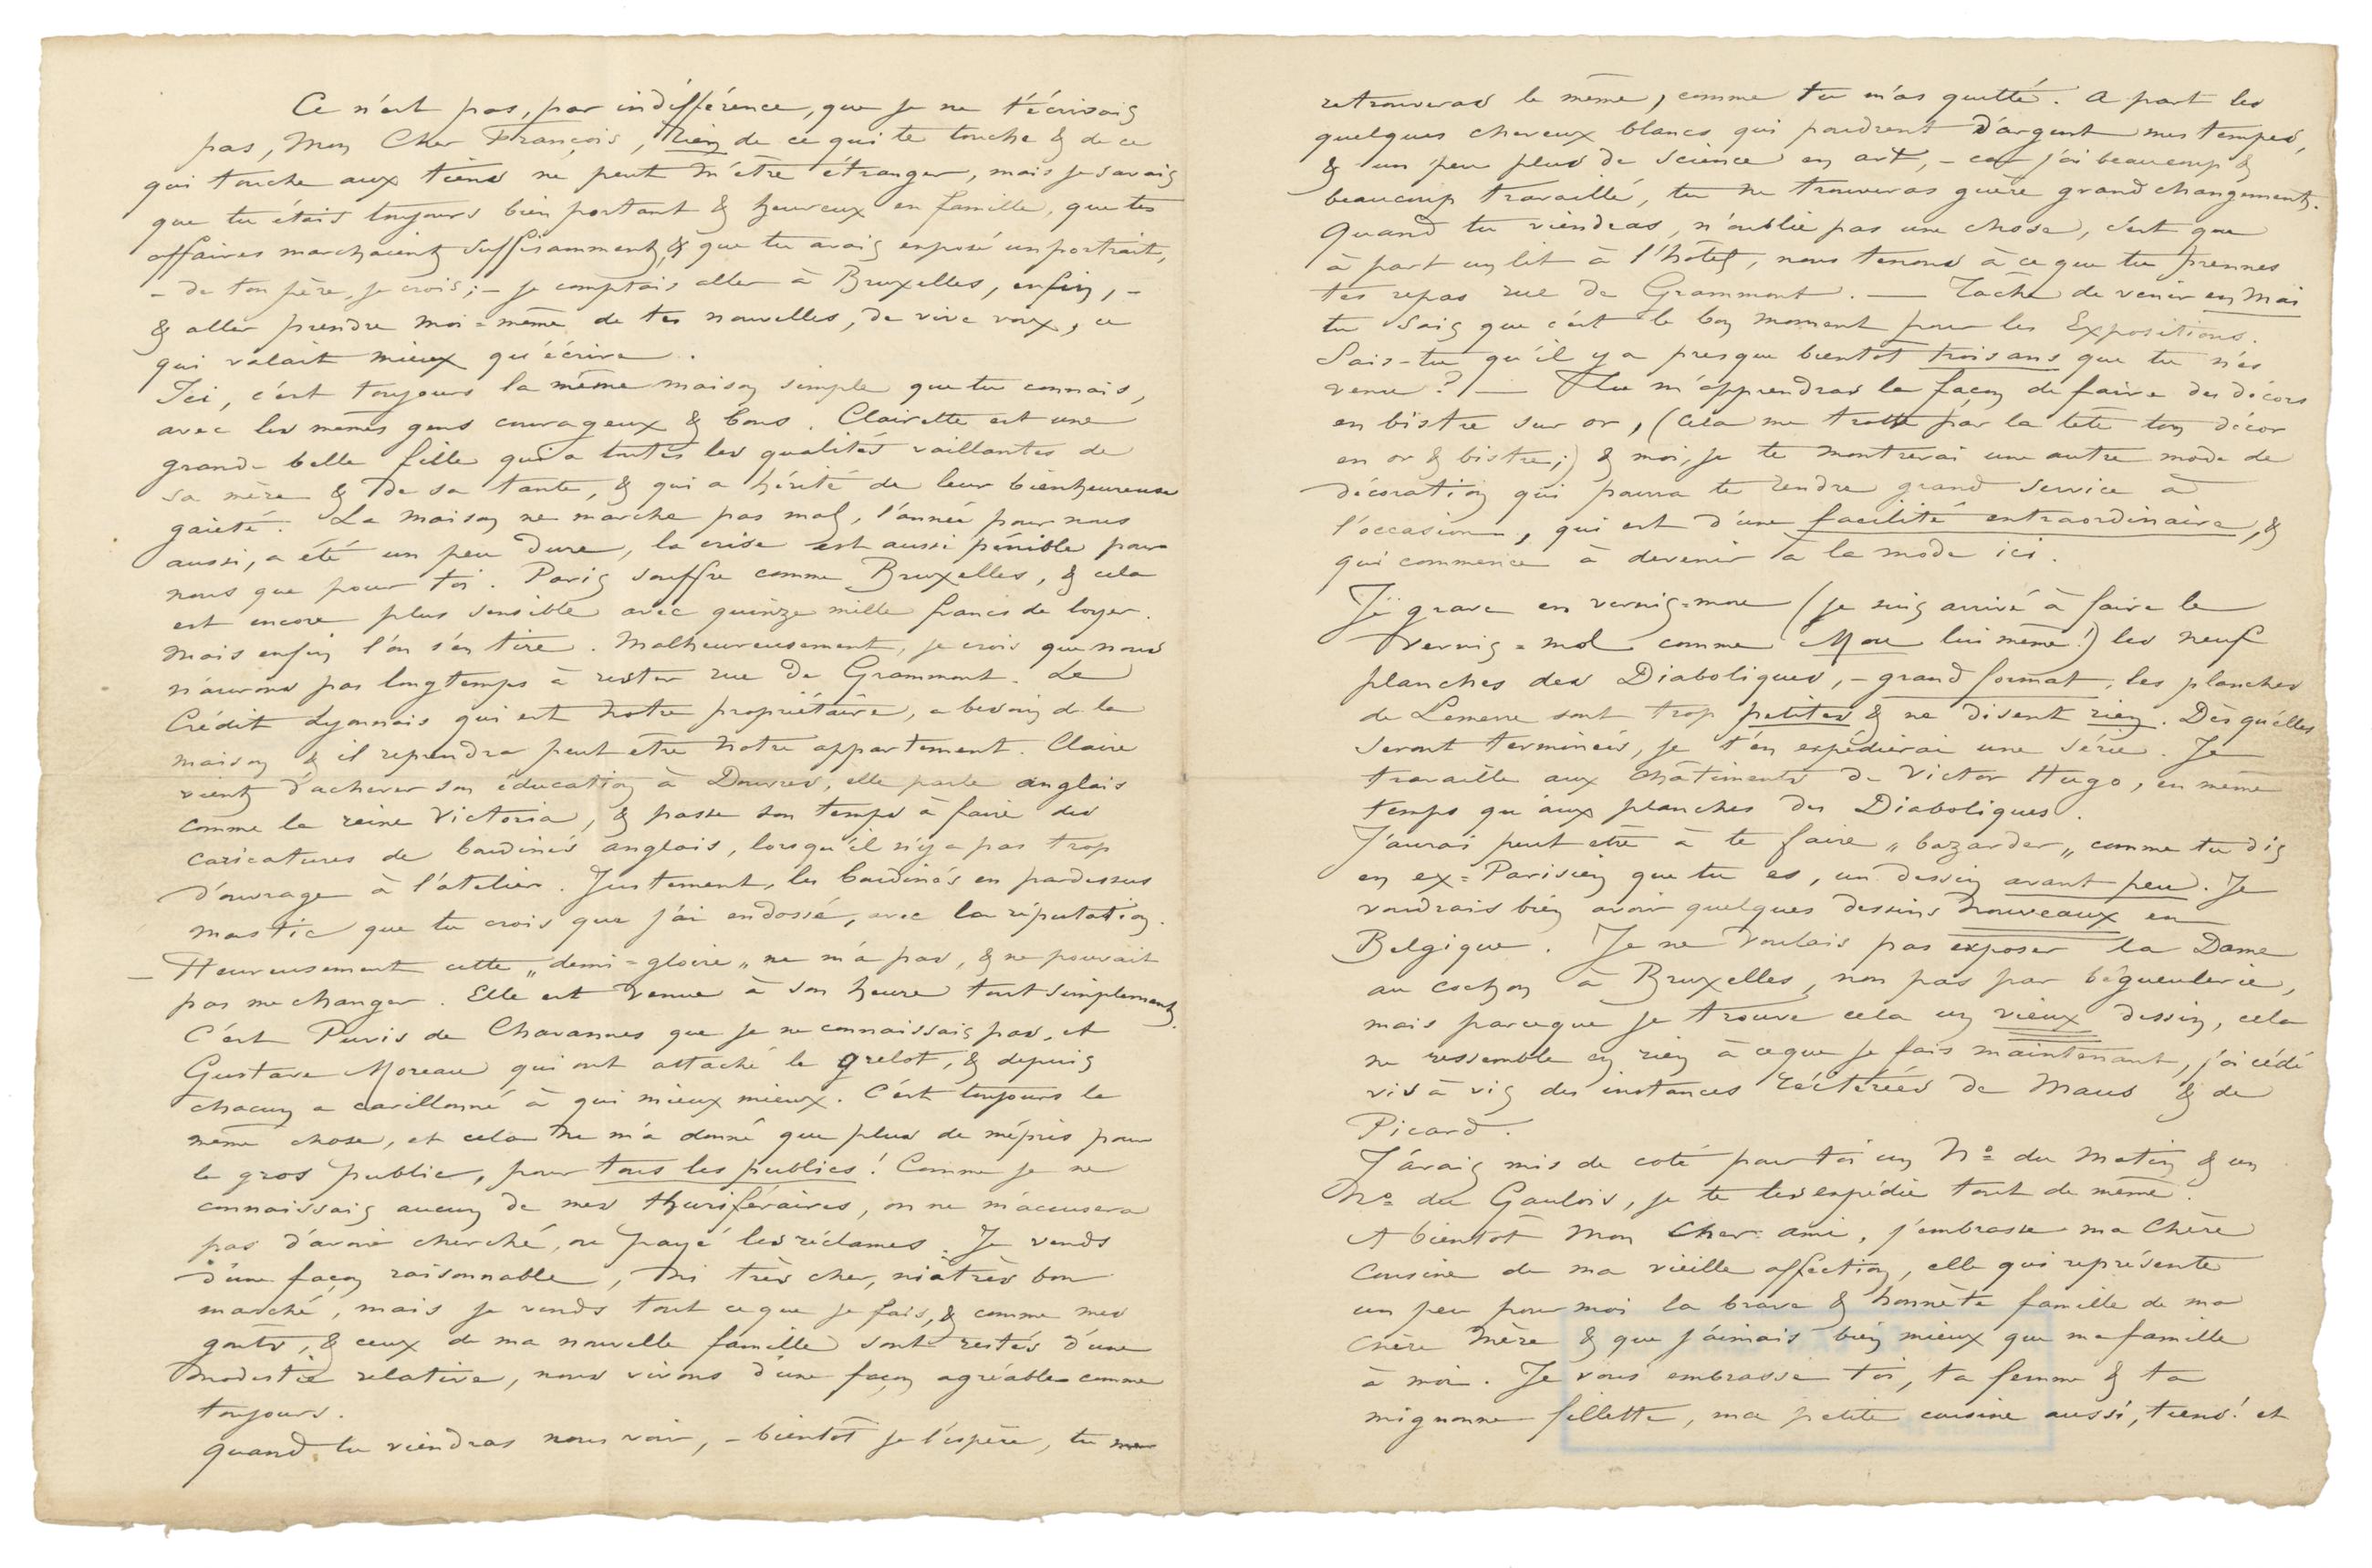 Ce n'est pas, par indifférence, que je ne t'écrivais
pas, Mon Cher François, rien de ce qui te touche & de ce
qui touche aux tiens ne peut m'être étranger, mais je savais
que tu étais toujours bien portant & heureux en famille, que tes
affaires marchaient suffisamment, & que tu avais exposé un portrait,
– de ton père, je crois ; – je comptais aller à Bruxelles, enfin, –
& aller prendre moi=même de tes nouvelles, de vive voix, ce
qui valait mieux qu'écrire.
Ici, c'est toujours la même maison simple que tu connais,
avec les mêmes gens courageux & bons. Clairette est une
grande belle fille qui a toutes les qualités vaillantes de
sa mère & de sa tante, & qui a hérité de leur bienheureuse
gaieté. La maison ne marche pas mal, l'année pour nous
aussi, a été un peu dure, la crise est aussi pénible pour
nous que pour toi. Paris souffre comme Bruxelles, & cela
est encore plus sensible avec quinze mille francs de loyer.
Mais enfin l'on s'en tire. Malheureusement, je crois que nous
n'aurons pas longtemps à rester rue de Grammont. Le
Crédit Lyonnais qui est notre propriétaire, a besoin de la
maison & il reprendra peut etre notre appartement. Claire
vient d'achever son éducation à Douvres, elle parle anglais
comme la reine Victoria, & passe son temps à faire des
caricatures de boudinés anglais, lorsqu'il n'y a pas trop
d'ouvrage à l'atelier. Justement, les boudinés en pardessus
mastic que tu crois que j'ai endossé, avec la réputation.
– Heureusement cette „demi=gloire„ ne m'a pas, & ne pouvait
pas me changer. Elle est venue à son heure tout simplement.
C'est Puvis de Chavannes que je ne connaissais pas, et
Gustave Moreau qui ont attaché le grelot, & depuis
chacun a carillonné à qui mieux mieux. C'est toujours la
même chose, et cela ne m'a donné que plus de mépris pour
le gros public, pour tous les publics ! Comme je ne
connaissais aucun de mes thuriféraires, on ne m'accusera
pas d'avoir cherché, ou payé les réclames. Je vends
d'une façon raisonnable, ni très cher, ni à très bon
marché, mais je vends tout ce que je fais, & comme mes
gouts, & ceux de ma nouvelle famille sont restés d'une
modestie relative, nous vivons d'une façon agréable comme
toujours.
Quand tu viendras nous voir, – bientôt je l'espère, tu me
retrouveras le même, comme tu m'as quitté. A part les
quelques cheveux blancs qui poudrent d'argent mes tempes,
& un peu plus de science en art, – car j'ai beaucoup &
beaucoup travaillé, tu ne trouveras guère grand changement.
Quand tu viendras, n'oublie pas une chose, c'est que
à part un lit à l'hôtel, nous tenons à ce que tu prennes
tes repas rue de Grammont. — Tache de venir en Mai
tu sais que c'est le bon moment pour les Expositions.
Sais-tu qu'il y a presque bientôt trois ans que tu n'es
venu ? — Tu m'apprendras la façon de faire des décors
en bistre sur or, (cela me trotte par la tête ton décor
en or & bistre ;) & moi, je te montrerai une autre mode de
décoration qui pourra te rendre grand service à
l'occasion, qui est d'une facilité extraordinaire, &
qui commence à devenir à la mode ici.
Je grave en vernis=mou (je suis arrivé à faire le
vernis=mol comme Mou lui même !) les neuf
planches des Diaboliques, – grand format, les planches
de Lemerre sont trop petites & ne disent rien. Dès qu'elles
seront terminées, je t'en expédierai une série. Je
travaille aux Châtiments de Victor Hugo, en même
temps qu'aux planches des Diaboliques.
J'aurai peut etre à te faire „bazarder„ comme tu dis
en ex=Parisien que tu es, un dessin avant peu. Je
voudrais bien avoir quelques dessins nouveaux en
Belgique. Je ne voulais pas exposer la Dame
au cochon à Bruxelles, non pas par bégueulerie,
mais parceque je trouve cela un vieux dessin, cela
ne ressemble en rien à ce que je fais maintenant, j'ai cédé
vis à vis des instances réitérées de Maus & de
Picard.
J'avais mis de coté pour toi un Nº du Matin & un
Nº du Gaulois, je te les expédie tout de même.
A bientôt Mon cher ami, j'embrasse ma chère
cousine de ma vieille affection, elle qui représente
un peu pour moi la brave & honnête famille de ma
chère mère & que j'aimais bien mieux que ma famille
à moi. Je vous embrasse toi, ta femme & ta
mignonne fillette, ma petite cousine aussi, tiens ! et